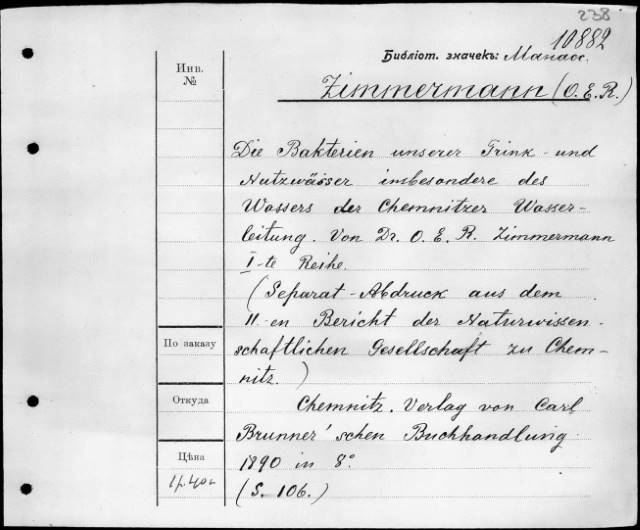 238
10882
Библіот. значекъ:
Инв.
№
Zimmermann (O. E. R.)
Die Bakterien unserer Trink- und
Nutzwässer insbesondere des
Wassers der Chemnitzer Wasser-
leitung. Von Dr. O. E. R. Zimmermann
I-te Reihe.
(Separat-Abdruck aus dem
11-en Bericht der Naturwissen-
schaftlichen Gesellschaft zu Chem-
nitz.)
По заказу
Откуда
Chemnitz. Verlag von Carl
Brunner'schen Buchhandlung
Цѣна
1890 in 8°.
(S. 106.)